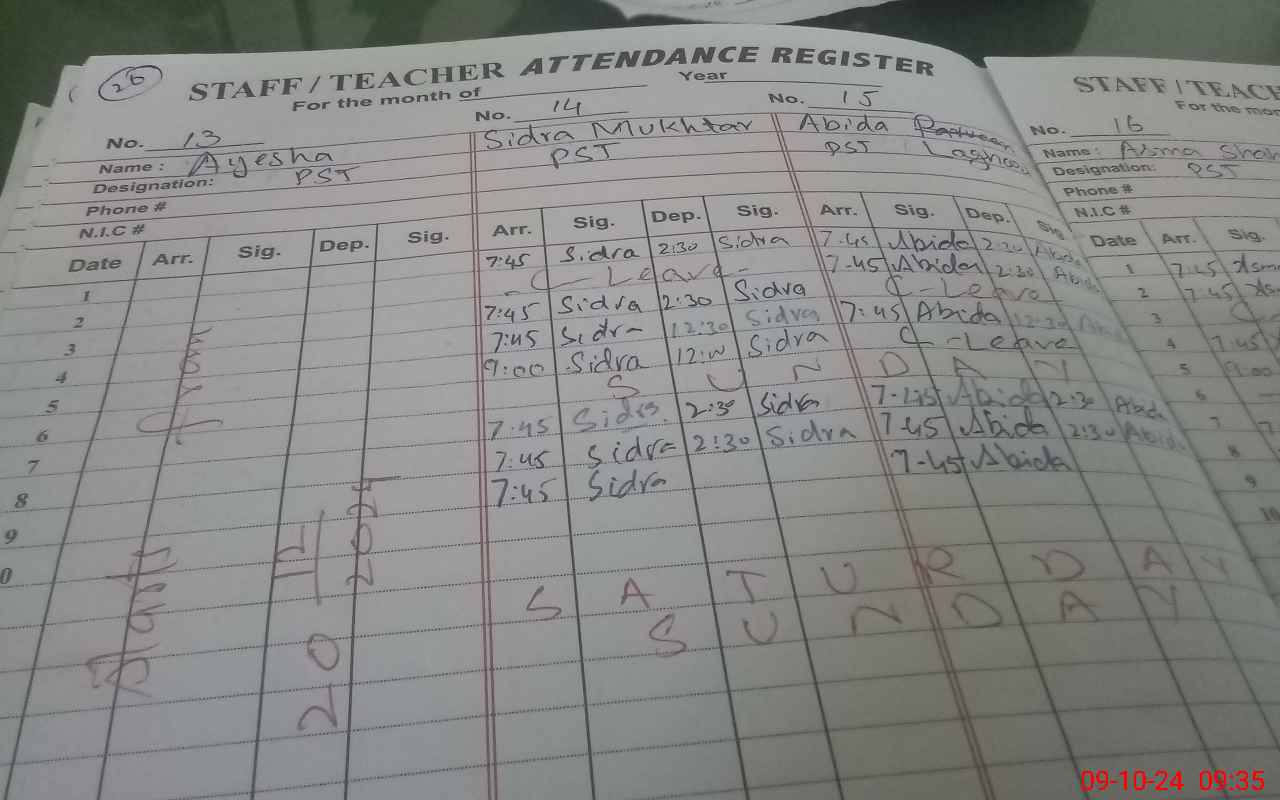 26
STAFF / TEACHER ATTENDANCE REGISTER
For the month of Year
No. 13 No. 14 No. 15
Name : Ayesha Sidra Mukhtar Abida
Designation: PST PST PST
Phone #
N.I.C #
Date Arr. Sig. Dep. Sig. Arr. Sig. Dep. Sig. Arr. Sig. Dep. Sig.
1 7:45 Sidra 2:30 Sidra 7-45 Abida 2:30 Abida
2 - C - Leave - 7-45 Abida 2:30 Abida
3 7:45 Sidra 2:30 Sidra C - Leave
4 7:45 Sidra 12:30 Sidra 7:45 Abida 12:30 Abida
5 9:00 Sidra 12:00 Sidra C - Leave
6 S U N D A Y
7 7:45 Sidra 2:30 Sidra 7-45 Abida 2:30 Abida
8 7:45 Sidra 2:30 Sidra 7-45 Abida 2:30 Abida
9 7:45 Sidra 7-45 Abida
0
S A T U R D A Y
S U N D A Y
20
2024
STAFF / TEACH
For the mo
No. 16
Name : Asma
Designation: PST
Phone #
N.I.C #
Date Arr. Sig.
1 7:45
2 7:45
3
4 7:45
5 9:00
6
7
8
9
10
09-10-24 09:35